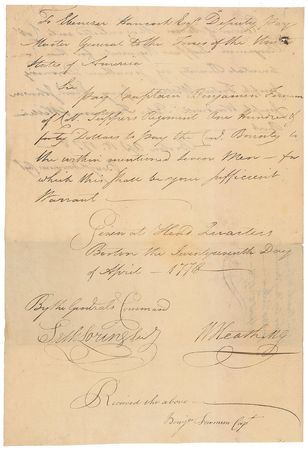 To Ebenezer Hancock Esqr. Deputy Pay
Master General to the Forces of the United
States of America
Sir
Pay Captain Benjamin Freeman
of Regiment One Hundred &
forty Dollars to Pay the Cont Bounty to
the within mentioned Seven Men — for
which this shall be your sufficient
Warrant —
Given at Head Quarters
Boston the Seventeenth Day
of April — 1778
By the Generals Command
W Heath MG
Received the above —
Benja Freeman Capt